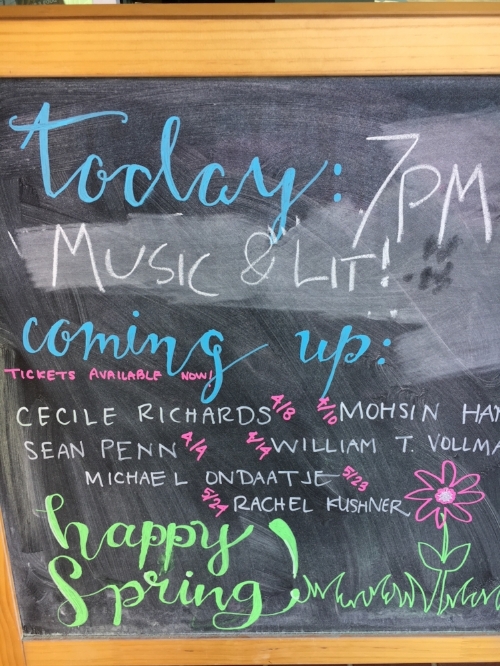 today: 7PM
MUSIC & LIT!
coming up:
TICKETS AVAILABLE NOW!
CECILE RICHARDS 4/8 4/10 MOHSIN HAM
SEAN PENN 4/4 4/14 WILLIAM T. VOLLMA
MICHAEL ONDAATJE 5/23
5/24 RACHEL KUSHNER
happy
Spring!